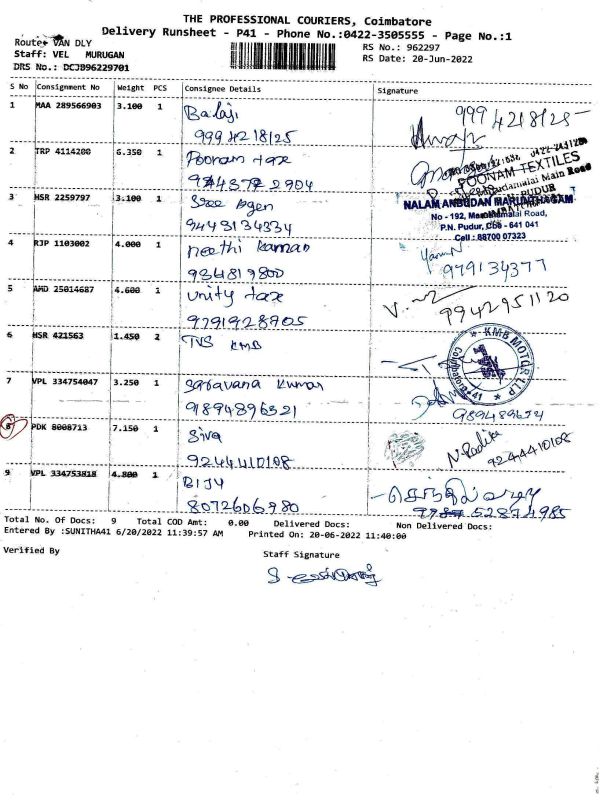 THE PROFESSIONAL COURIERS, Coimbatore
Delivery Runsheet - P41 - Phone No.:0422-3505555 - Page No.:1
Route: VAN DLY
Staff: VEL MURUGAN
DRS No.: DCJB96229701
RS No.: 962297
RS Date: 20-Jun-2022
S No Consignment No Weight PCS Consignee Details Signature
1 MAA 289566903 3.100 1 Balaji
9994218125
9994218125
2 TRP 4114200 6.350 1 Poonam tax
POONAM TEXTILES
3 HSR 2259797 3.100 1 Sree Agen
9443134334
NALAM ANBUDAN MARUNTHAGAM
No - 192, Maruthamalai Road,
P.N. Pudur, Cbe - 641 041
Cell : 88700 07323
4 RJP 1103002 4.000 1 neethi kannan
934819800
979134377
5 AMD 25014687 4.600 1 unity tax
9791928905
9942951120
6 HSR 421563 1.450 2 TVS KMB
KMB MOTOR LLP
Coimbatore-41
7 VPL 334754047 3.250 1 Saravana kumar
9894896321
8 PDK 8008713 7.150 1 Siva
9244410108
N. Radika
9244410108
9 VPL 334753818 4.800 1 BIJY
8072606980
Total No. Of Docs: 9 Total COD Amt: 0.00 Delivered Docs: Non Delivered Docs:
Entered By :SUNITHA41 6/20/2022 11:39:57 AM Printed On: 20-06-2022 11:40:00
Verified By Staff Signature